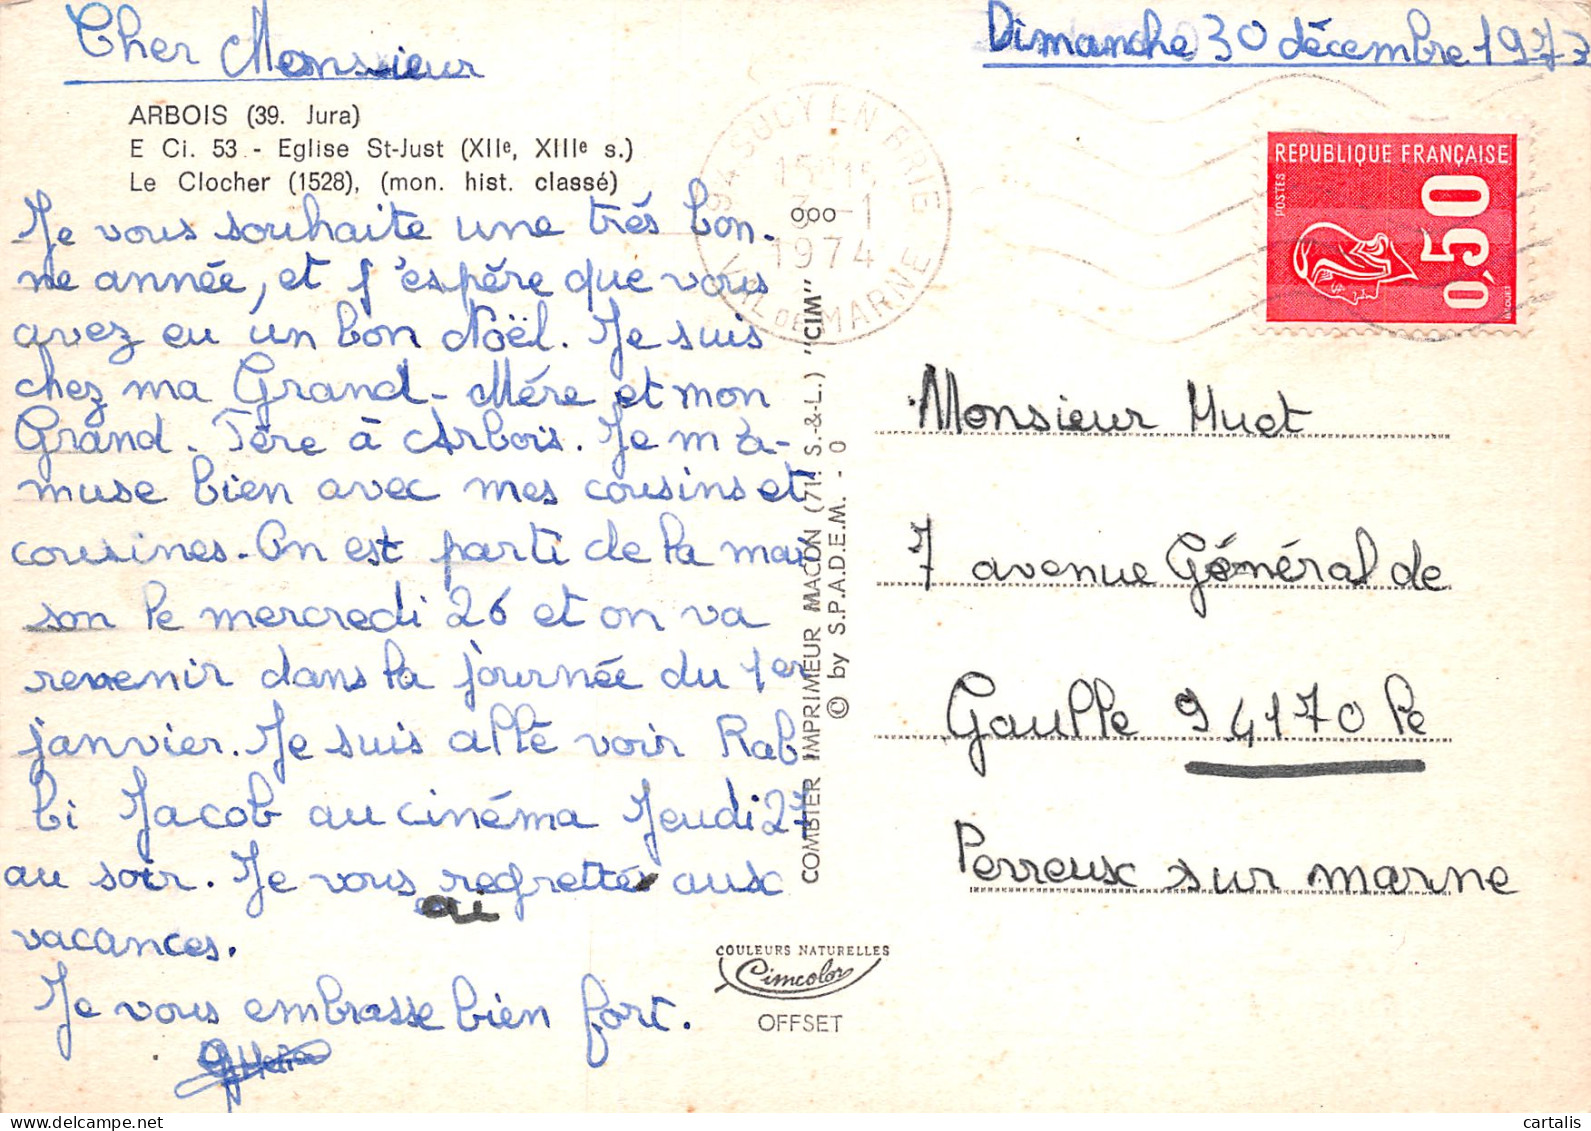 Cher Monsieur
Dimanche 30 décembre 1973
ARBOIS (39. Jura)
E Ci. 53 - Eglise St-Just (XIIe, XIIIe s.)
Le Clocher (1528), (mon. hist. classé)
Je vous souhaite une très bon-
ne année, et j'espère que vous
avez eu un bon Noël. Je suis
chez ma Grand-Mére et mon
Grand-Père à Arbois. Je m'a-
muse bien avec mes cousins et
cousines. On est parti de la mai
son le mercredi 26 et on va
revenir dans la journée du 1er
janvier. Je suis allé voir Rab
bi Jacob au cinéma Jeudi 27
au soir. Je vous regrette aux
ai
vacances.
Je vous embrasse bien fort.
94 SUCY EN BRIE
15H15
3 -1
1974
VAL DE MARNE
REPUBLIQUE FRANÇAISE
POSTES
0,50
BEQUET
COMBIER IMPRIMEUR MACON (71. S.-&-L.) "CIM"
© by S.P.A.D.E.M. - 0
Monsieur Huet
7 avenue Général de
Gaulle 94170 le
Perreux sur marne
COULEURS NATURELLES
Cimcolor
OFFSET
www.delcampe.net
cartalis